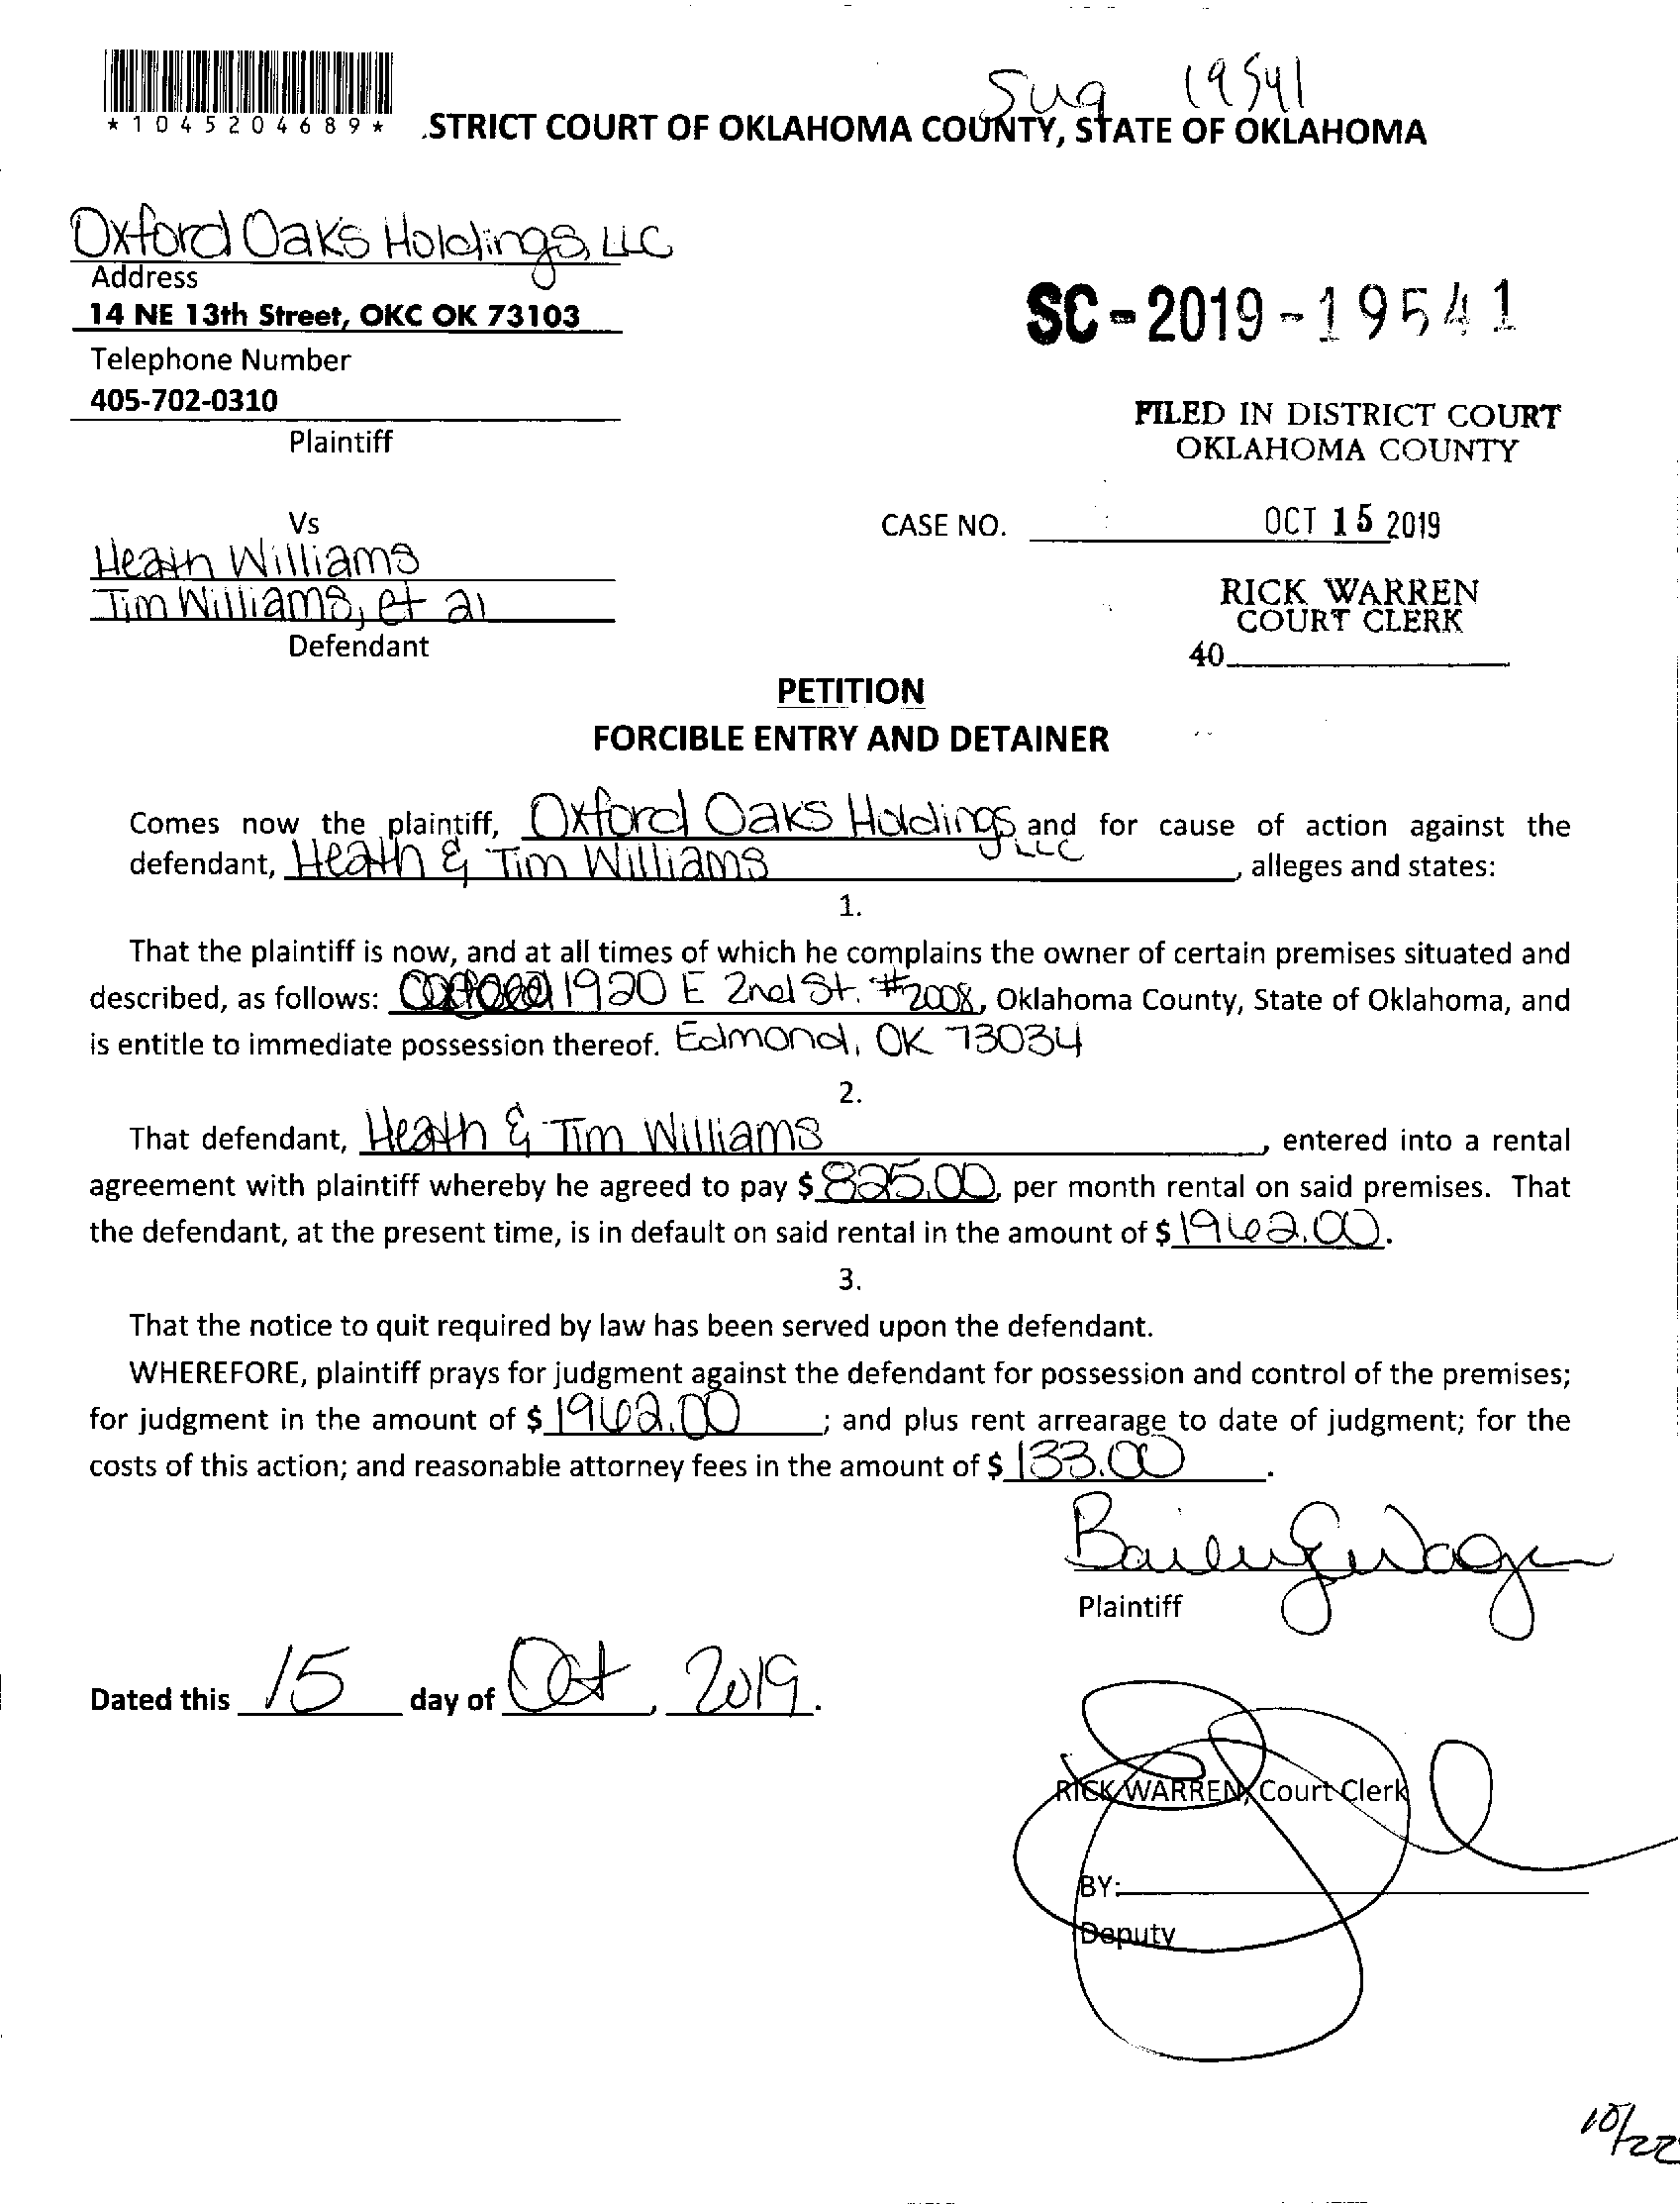 Sug 19541
*1045204689* .STRICT COURT OF OKLAHOMA COUNTY, STATE OF OKLAHOMA
Oxford Oaks Holdings, LLC
Address
14 NE 13th Street, OKC OK 73103
SC-2019-19541
Telephone Number
405-702-0310
FILED IN DISTRICT COURT
Plaintiff
OKLAHOMA COUNTY
Vs
CASE NO. OCT 15 2019
Heath Williams
Tim Williams, et al
RICK WARREN
COURT CLERK
Defendant
40
PETITION
FORCIBLE ENTRY AND DETAINER
Comes now the plaintiff, Oxford Oaks Holdings LLC and for cause of action against the
defendant, Heath & Tim Williams, alleges and states:
1.
That the plaintiff is now, and at all times of which he complains the owner of certain premises situated and
described, as follows: 1920 E 2nd St. #2008, Oklahoma County, State of Oklahoma, and
is entitle to immediate possession thereof. Edmond, OK 73034
2.
That defendant, Heath & Tim Williams, entered into a rental
agreement with plaintiff whereby he agreed to pay $825.00, per month rental on said premises. That
the defendant, at the present time, is in default on said rental in the amount of $1962.00.
3.
That the notice to quit required by law has been served upon the defendant.
WHEREFORE, plaintiff prays for judgment against the defendant for possession and control of the premises;
for judgment in the amount of $1962.00; and plus rent arrearage to date of judgment; for the
costs of this action; and reasonable attorney fees in the amount of $133.00.
Plaintiff
Dated this 15 day of Oct, 2019.
RICK WARREN, Court Clerk
BY:
Deputy
10/22